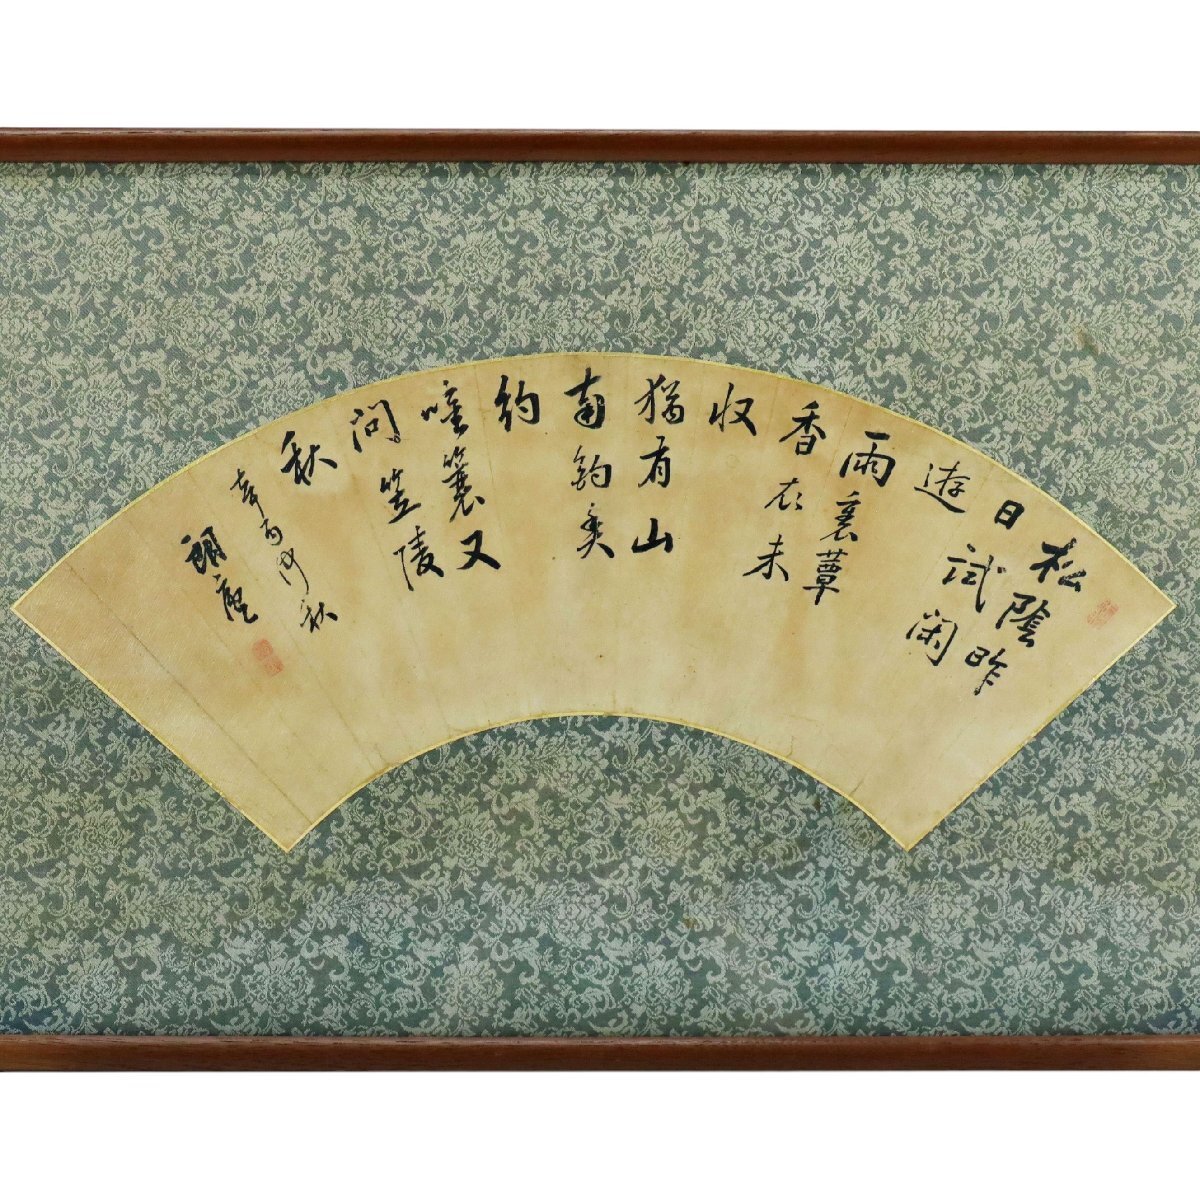 松陰昨
日試閑
遊
雨裏蕈
香衣未
收
猶有山
南釣奚
約
唫簑又
問笠陵
秋
辛酉初秋
庵